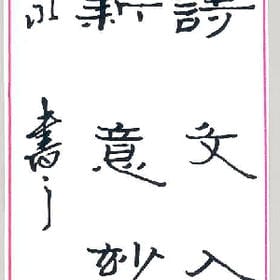 詩文入
新意妙
書之